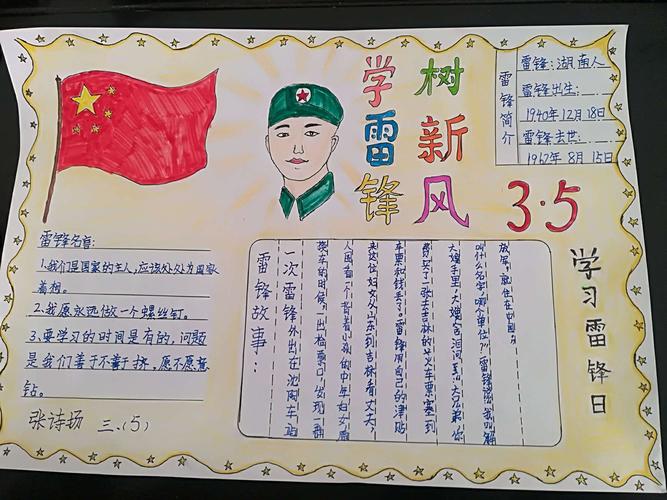 学雷锋
树新风
3·5
雷锋简介
雷锋:湖南人
雷锋出生:
1940年12月18日
雷锋去世:
1962年8月15日
雷锋名言:
1、我们是国家的主人,应该处处为国家
着想。
2、我愿永远做一个螺丝钉。
3、要学习的时间是有的,问题
是我们善于不善于挤,愿不愿意
钻。
张诗 三、(5)
雷锋故事:
一次雷锋外出在沈阳车站
换车的时候,一出检票口,发现一群
人围着一个背着小孩的中年妇女原
来这位妇女从山东到吉林看丈夫,
车票和钱丢了。雷锋用自己的津贴
费买了一张去吉林的火车票塞到
大嫂手里,大嫂含泪问到:"大兄弟你
叫什么名字,哪个单位?"雷锋说:"我叫解
放军,就住在中国。"
学习雷锋日